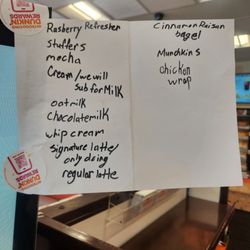 Rasberry Refresher
Stuffers
mocha
Cream/we will
sub for Milk
oatmilk
chocolatemilk
whip cream
signature latte/
only doing
regular latte
Cinnamon Raisan
bagel
Munchkins
chicken
wrap
DUNKIN'
REWARDS